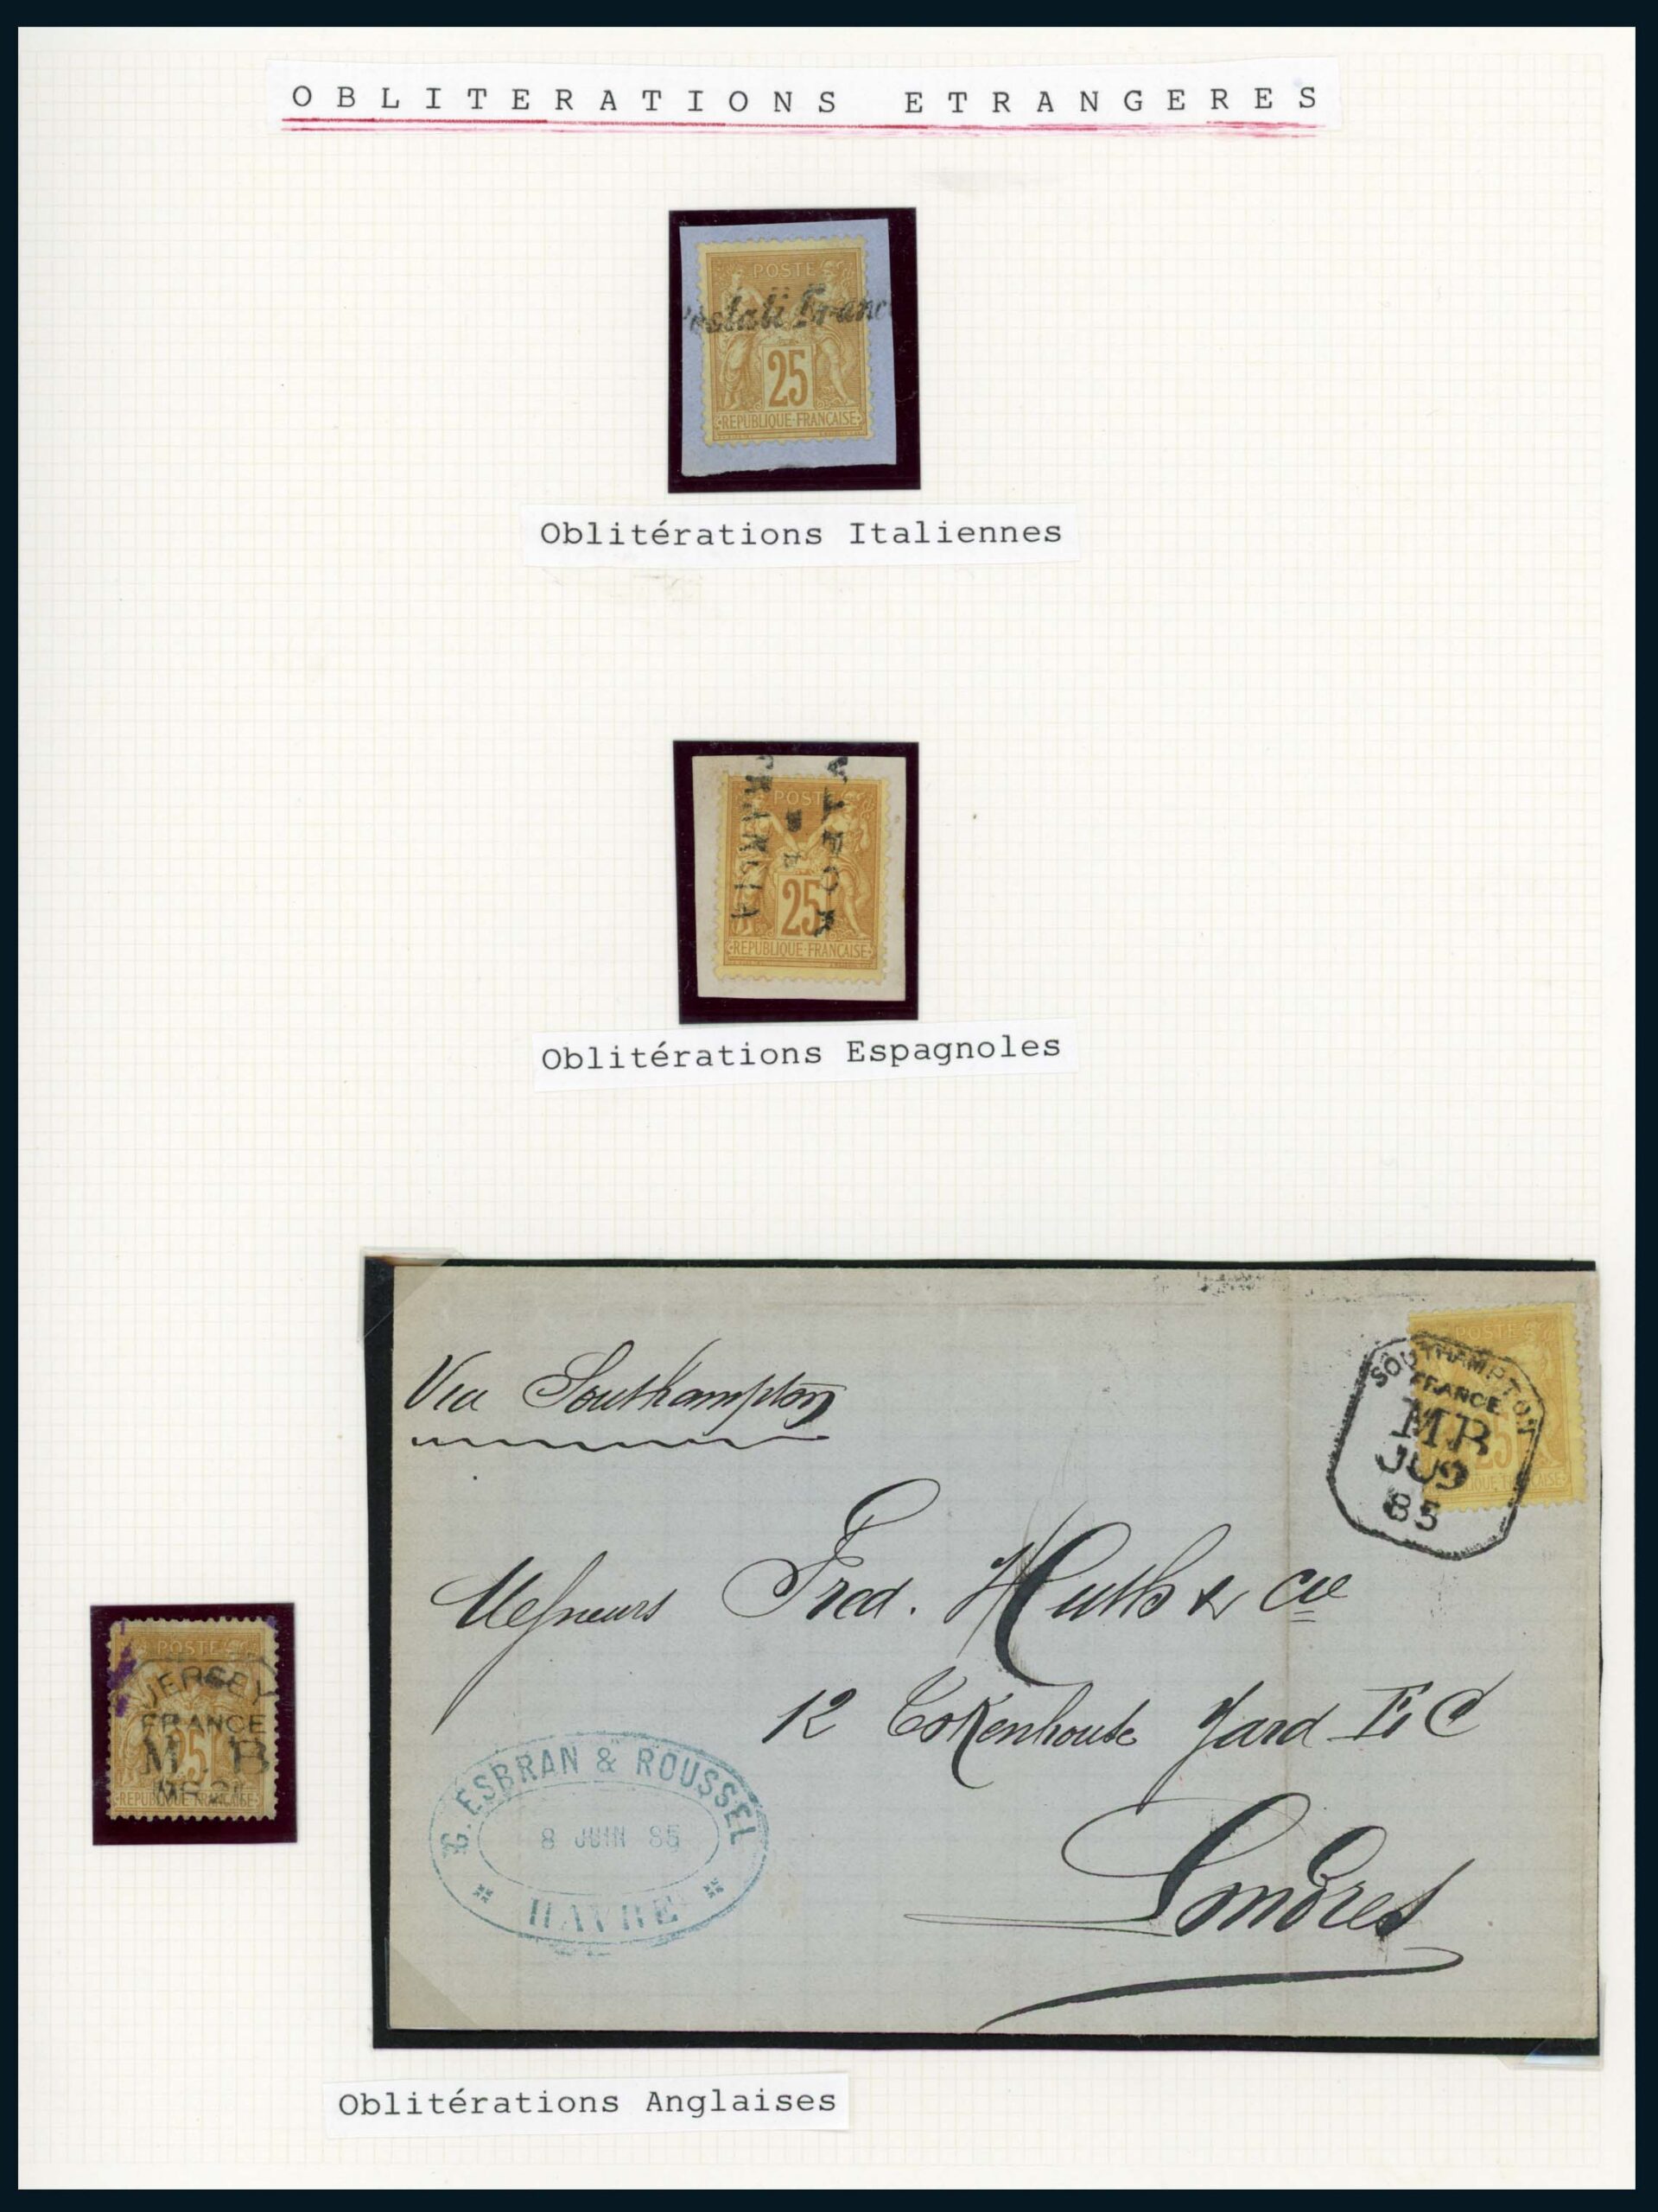 OBLITERATIONS ETRANGERES
POSTE
Postali Franc
25
REPUBLIQUE FRANCAISE
Oblitérations Italiennes
POSTE
VAPOR
FRANCIA
25
REPUBLIQUE FRANCAISE
Oblitérations Espagnoles
Via Southampton
POSTE
SOUTHAMPTON
FRANCE
MB
JU 9
85
25
Messieurs Fred. Huth & Cie
12 Tokenhouse Yard E C
Londres
POSTE
JERSEY
FRANCE
M.B
25
REPUBLIQUE FRANCAISE
ESBRAN & ROUSSEL
8 JUIN 85
HAVRE
Oblitérations Anglaises